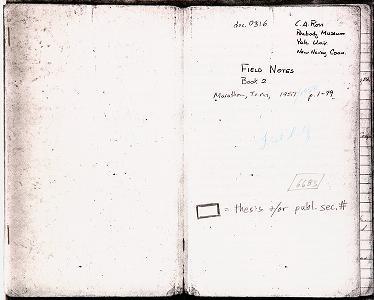 doc. 0316
C.A. Ross
Peabody Museum
Yale Univ.
New Haven, Conn.
FIELD NOTES
Book 2
Marathon, Texas, 1957 p. 1-99
6683
= thesis +/or publ. sec. #